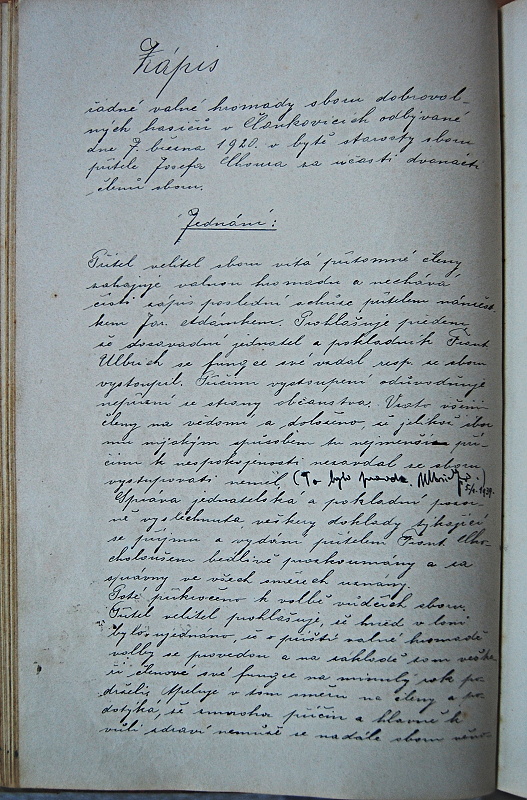 Zápis
řádné valné hromady sboru dobrovol-
ných hasičů v Čankovicích odbývané
dne 7. března 1920. v bytě starosty sboru
přítele Josefa Choura za účasti dvanácti
členů sboru.
Jednání:
Přítel velitel sboru vítá přítomné členy,
zahajuje valnou hromadu a nechává
čísti zápis poslední schůze přítelem náměst-
kem Jar. Adámkem. Prohlašuje předem
že dosavadní jednatel a pokladník Frant.
Ulbrich se funkce své vzdal resp. ze sboru
vystoupil. Příčinu vystoupení odůvodňuje
nepřízní ze strany občanstva. Vzato všemi
členy na vědomí a doloženo, že jelikož sbor
mu nijakým způsobem tu nejmenší pří-
činu k nespokojenosti nezavdal ze sboru
vystupovati neměl. (To bylo pravda. Ulbrich 5/1. 1939.)
Zpráva jednatelská a pokladní pozor-
ně vyslechnuta, veškery doklady týkající
se příjmu a vydání přítelem Frant. Cho-
choloušem bedlivě prozkoumány a za
správny ve všech směrech uznány.
Poté přikročeno k volbě vůdčích sboru.
Přítel velitel prohlašuje, že hned v loni
bylo ujednáno, že o příští valné hromadě
volby se provedou a na základě tom veške-
ří členové své funkce na minulý rok po-
drželi. Apeluje v tom směru na členy a po-
dotýká, že z mnoha příčin a hlavně k
vůli zdraví nemůže se nadále sboru věno-